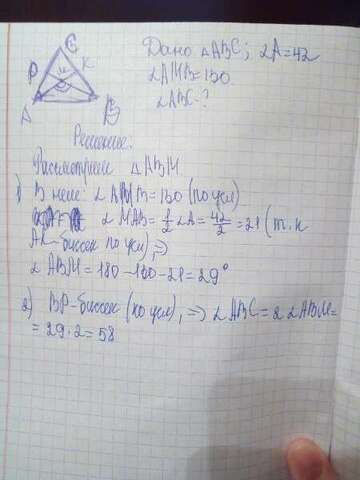 C
P
K
M
A
B
Дано △ABC; ∠A=42
∠AMB=130.
∠ABC-?
Решение:
Рассмотрим △ABM
1) В нем: ∠AMB=130 (по усл)
∠MAB=1/2∠A=42/2=21 (т.к
AK-биссек по усл),=>
∠ABM=180-130-21=29°
2) BP-биссек (по усл),=>∠ABC=2∠ABM=
=29·2=58